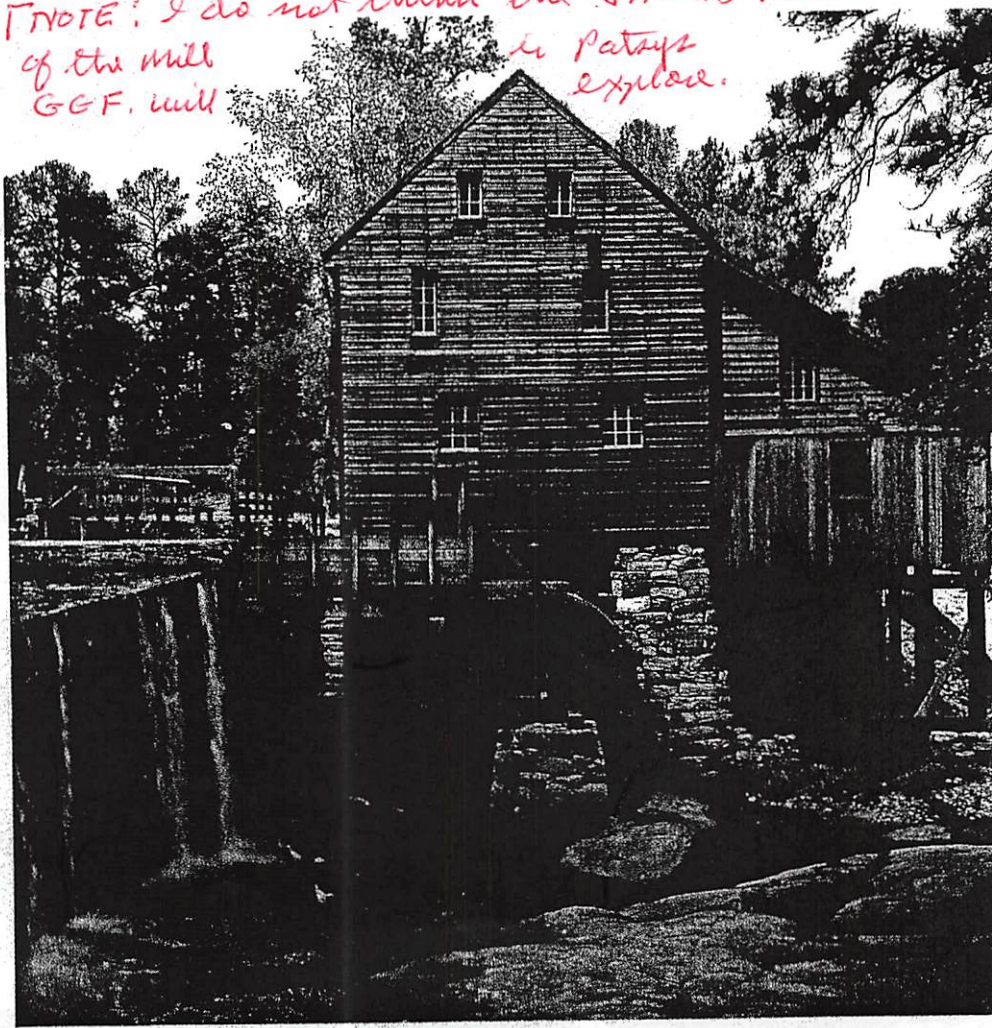 [NOTE: I do not think the
of the mill is Patsys
GGF. will explore.